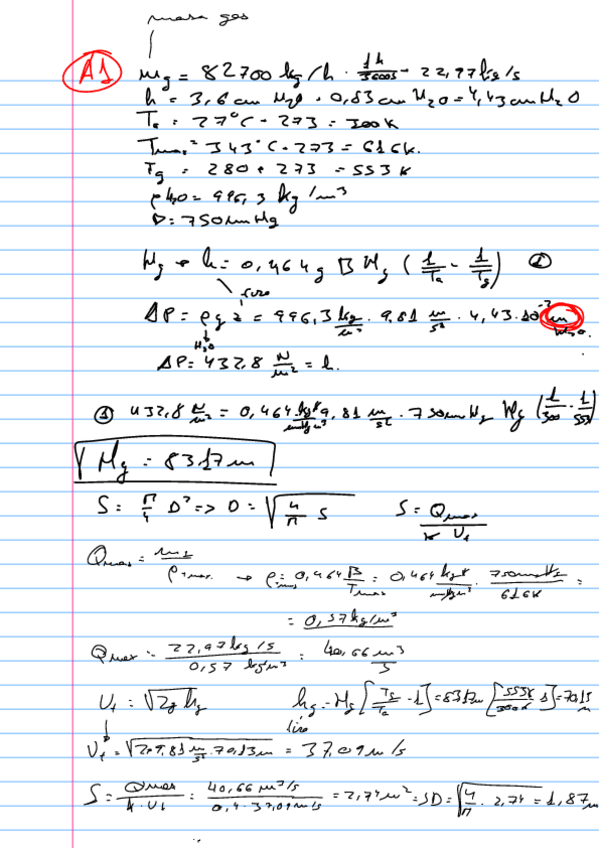 masa gas
A1
mg = 82700 kg/h · 1h/3600s = 22,97 kg/s
h = 3,6 cm H2O + 0,83 cm H2O = 4,43 cm H2O
Ta = 27°C + 273 = 300K
Tmax = 343°C + 273 = 616K.
Tg = 280 + 273 = 553K
ρH2O = 996,3 kg/m³
B = 750 mmHg
Hg → h = 0,464 g B Hg (1/Ta - 1/Tg) ①
ΔP = ρ g z = 996,3 kg/m³ · 9,81 m/s² · 4,43·10⁻² m
H2O
ΔP = 432,8 N/m² = h.
① 432,8 N/m² = 0,464 kgK/mmHg m³ 9,81 m/s² · 750 mmHg Hg (1/300 - 1/553)
Hg = 83,17 m
S = π/4 D² => D = √(4/π S) S = Qmax/(K Ut)
Qmax = mg/ρTmax → ρTmax = 0,464 B/Tmax = 0,464 kgK/mmHg m³ · 750mmHg/616K =
= 0,57 kg/m³
Qmax = 22,97 kg/s / 0,57 kg/m³ = 40,66 m³/s
Ut = √(2g hg) hg = Hg [Tg/Ta - 1] = 83,17m [553K/300K - 1] = 70,13 m
tiro
Ut = √(2·9,81 m/s² · 70,13m) = 37,09 m/s
S = Qmax/(K·Ut) = 40,66 m³/s / 0,4·37,09 m/s = 2,74 m² => D = √(4/π · 2,74) = 1,87 m